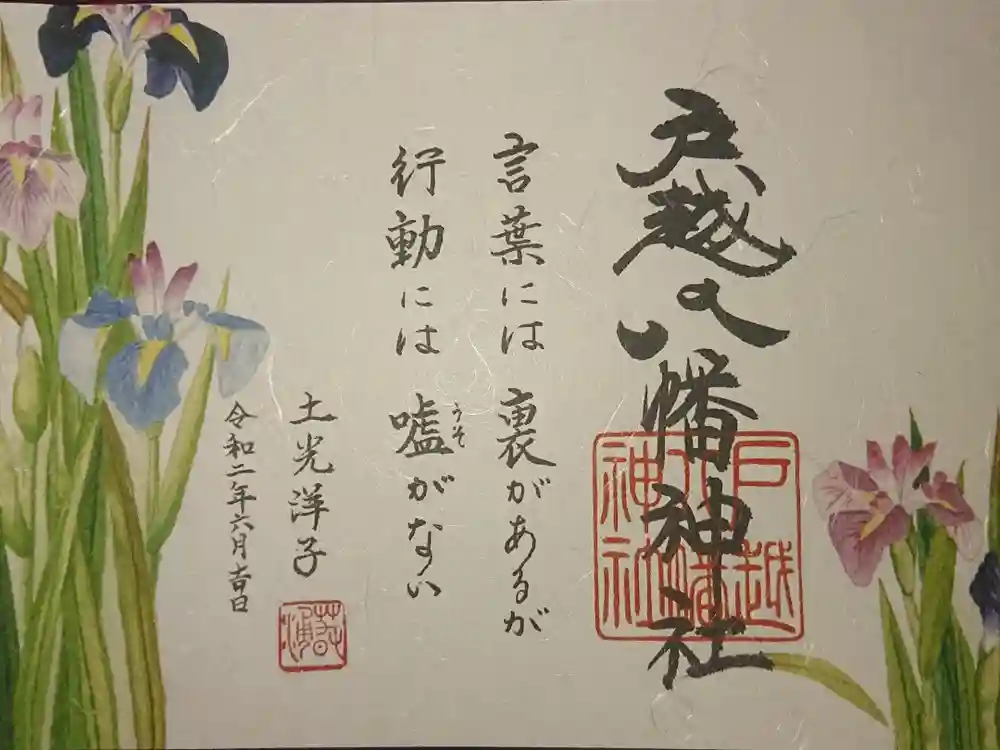 戸越八幡神社
戸越八幡神社
言葉には裏があるが
行動には嘘がない
うそ
土光洋子
令和二年六月吉日